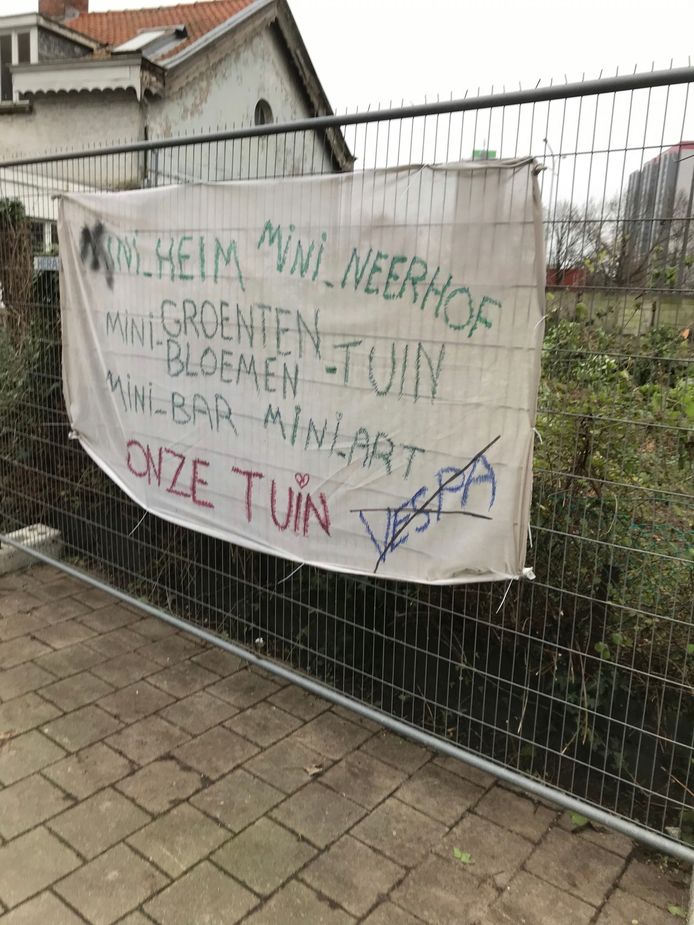 MINI-HEIM MINI-NEERHOF
MINI-GROENTEN
BLOEMEN -TUIN
MINI-BAR MINI-ART
ONZE TUIN
VESPA